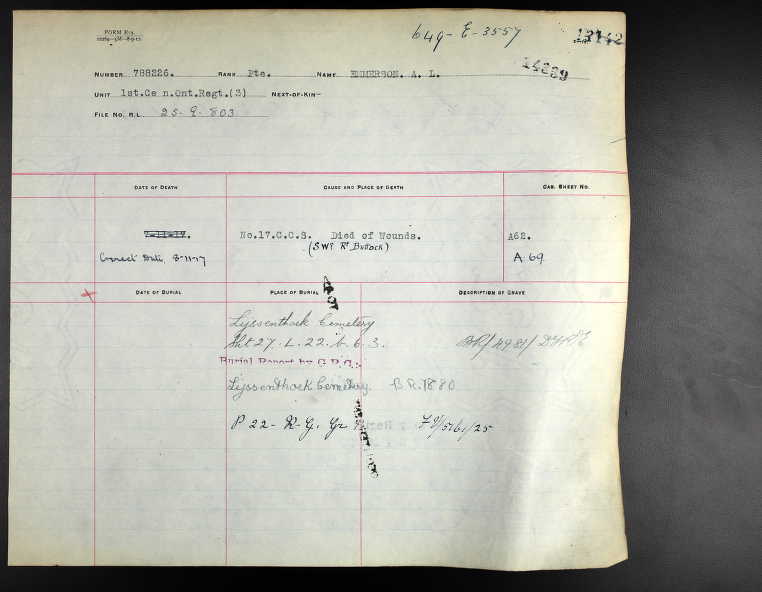 FORM R.9
649-E-3557
14889
NUMBER 788226. RANK Pte. NAME EMMERSON. A. L.
UNIT 1st.Ce n.Ont.Regt.(3) NEXT-OF-KIN—
FILE NO. R.L. 25-9-803
DATE OF DEATH CAUSE AND PLACE OF DEATH CAS. SHEET NO.
No.17.C.C.S. Died of Wounds. A62.
Correct Date, 8-11-17 (SW? Rt Buttock) A 69
DATE OF BURIAL PLACE OF BURIAL DESCRIPTION OF GRAVE
Lyssenthoek Cemetery
Sht 27. L. 22. b. 6. 3.
Burial Report by G.R.O.:
Lyssenthoek Cemetery. B.R. 7880
P 22- R-G. Gr